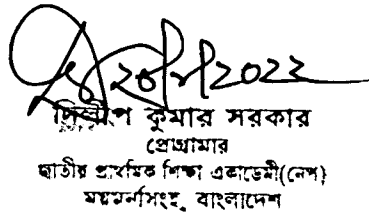 ২০২২
দিলীপ কুমার সরকার
প্রোগ্রামার
জাতীয় প্রাথমিক শিক্ষা একাডেমী(নেপ)
ময়মনসিংহ, বাংলাদেশ